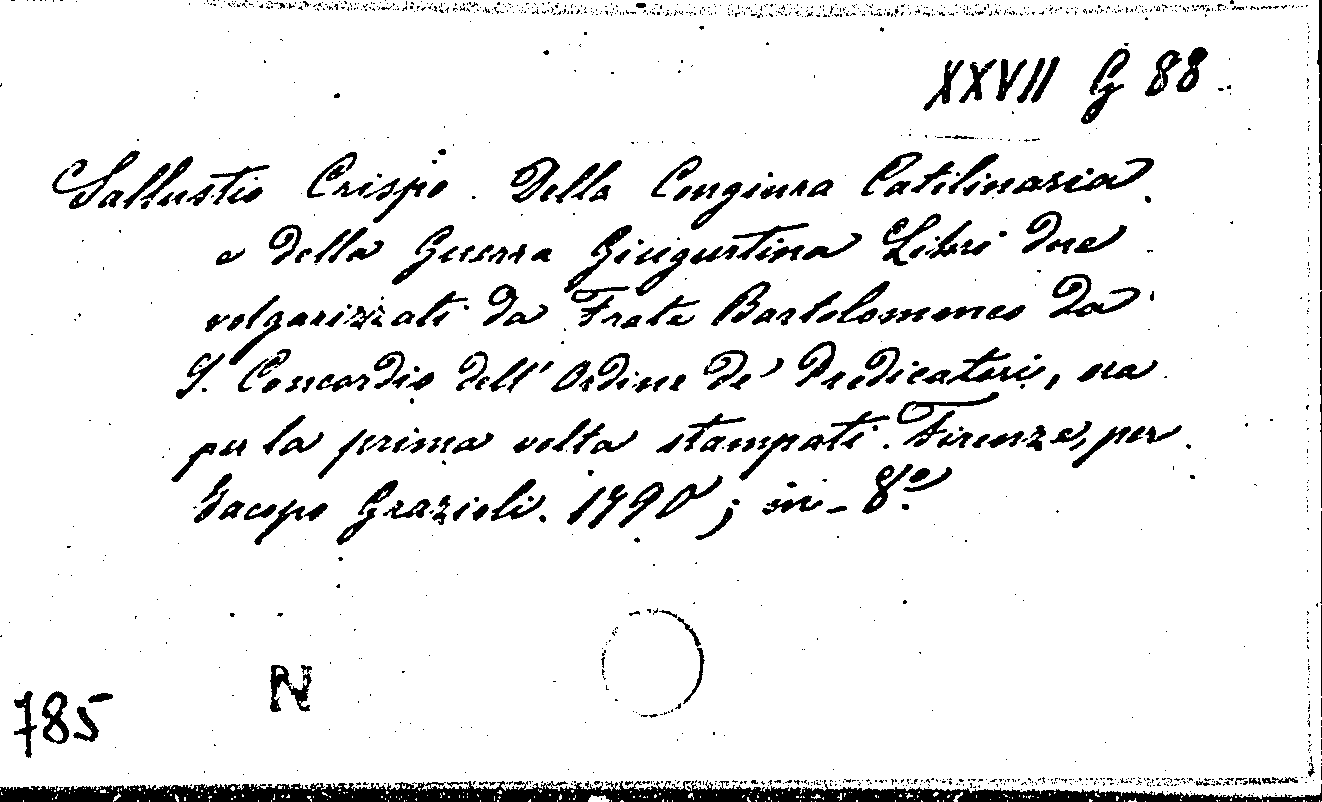 XXVII G 88
Sallustio Crispo. Della Congiura Catilinaria
e della Guerra Giugurtina Libri due
volgarizzati da Frate Bartolommeo da
S. Concordio dell' Ordine de' Predicatori, ora
per la prima volta stampati. Firenze, per
Jacopo Grazioli. 1790; in-8º
N
785